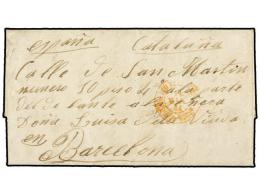 España Cataluña
Calle de San Martin
numero 10 piso de la parte
del de lante a la Señora
Doña Luisa Viuda
en
Barcelona